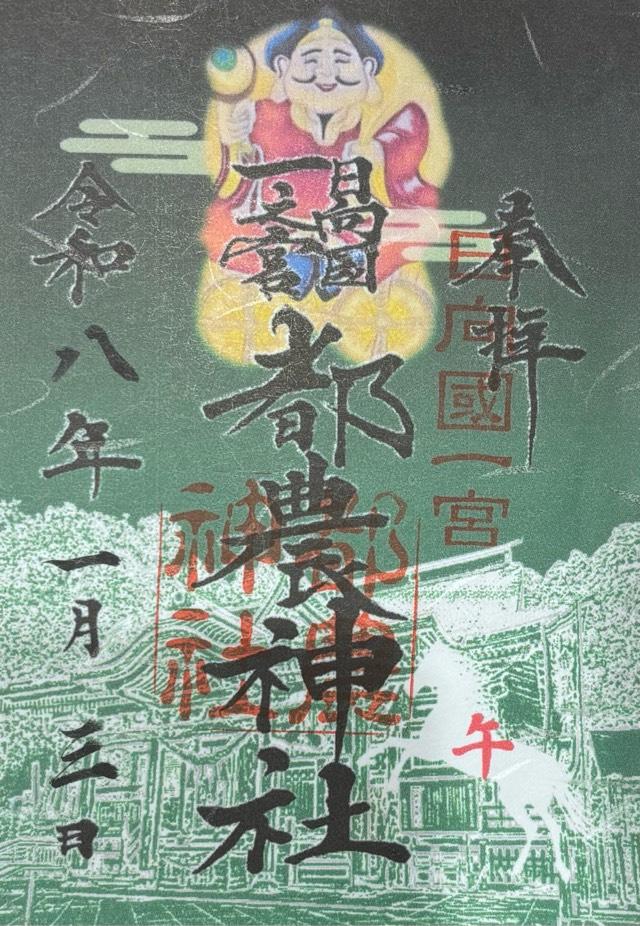 奉拝
日向國一宮
日向國
一之宮
都農神社
都農
神社
令和八年一月三日
午